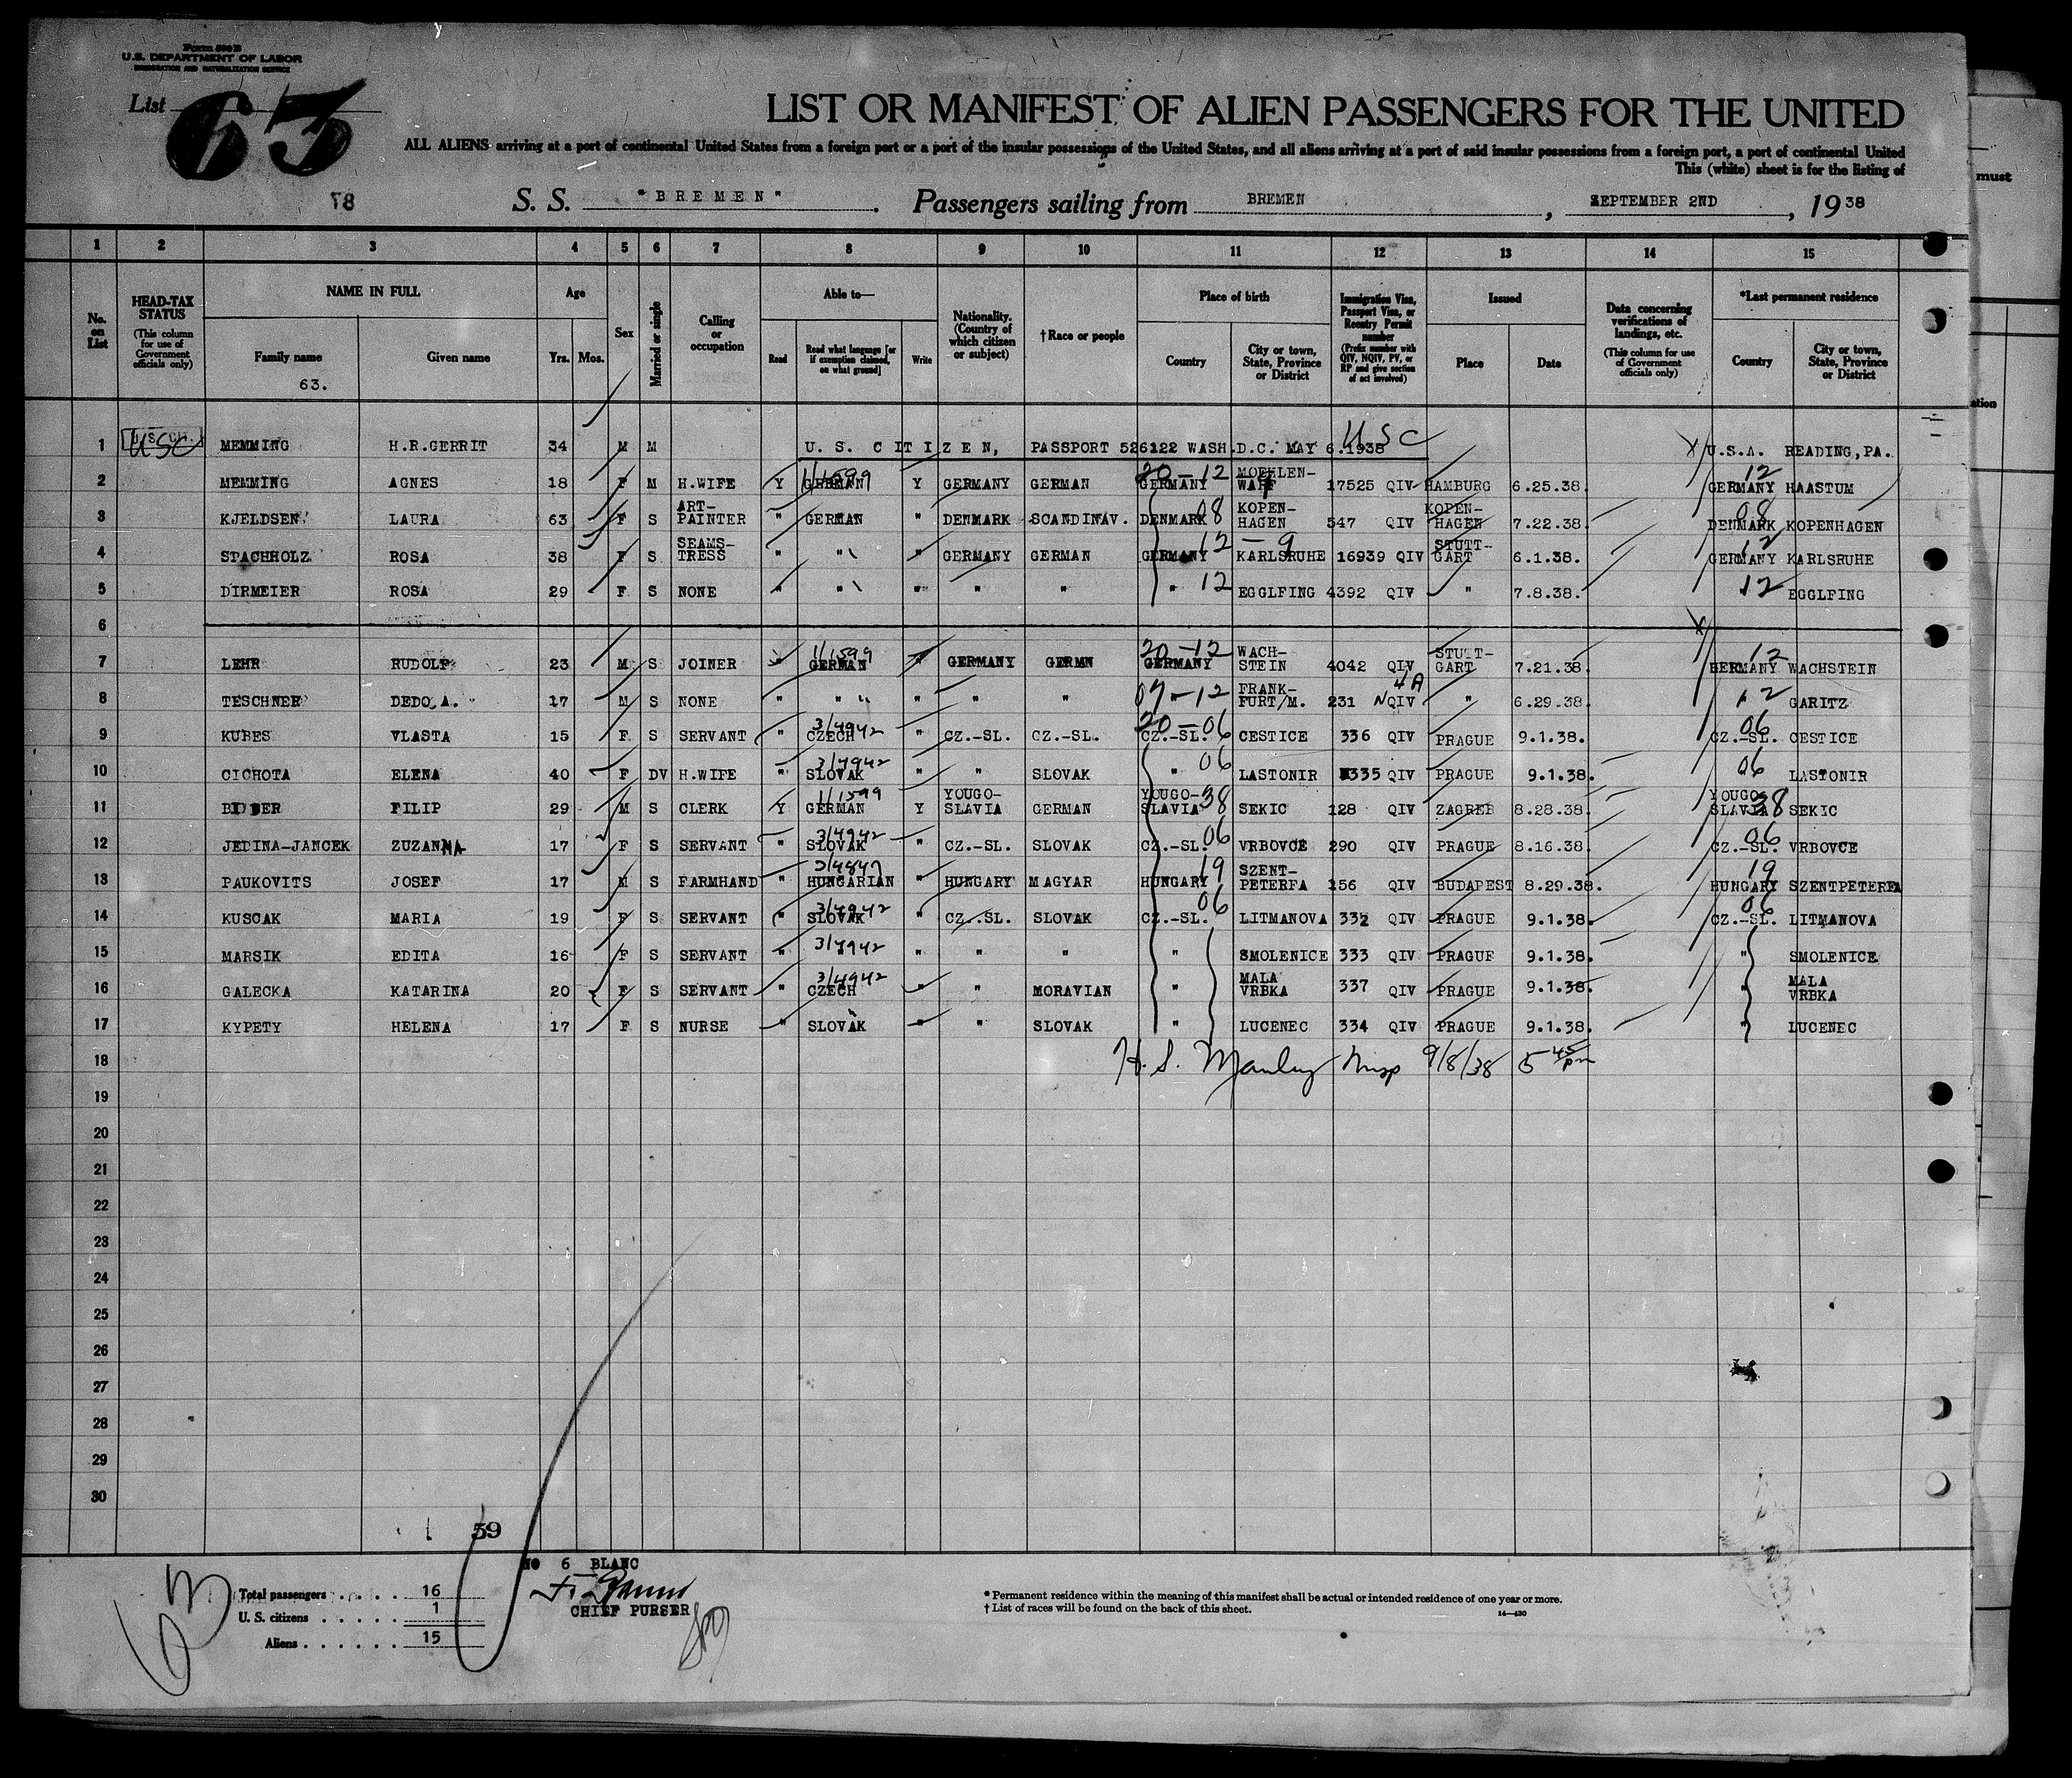 Form 500 B
U.S. DEPARTMENT OF LABOR
IMMIGRATION AND NATURALIZATION SERVICE
List 63
LIST OR MANIFEST OF ALIEN PASSENGERS FOR THE UNITED
ALL ALIENS arriving at a port of continental United States from a foreign port or a port of the insular possessions of the United States, and all aliens arriving at a port of said insular possessions from a foreign port, a port of continental United
This (white) sheet is for the listing of
must
78
S. S. "BREMEN". Passengers sailing from BREMEN, SEPTEMBER 2ND, 1938
1 2 3 4 5 6 7 8 9 10 11 12 13 14 15
No. on List
HEAD-TAX STATUS (This column for use of Government officials only)
NAME IN FULL Family name Given name
63.
Age Yrs. Mos.
Sex
Married or single
Calling or occupation
Able to— Read Read what language [or if exemption claimed, on what ground] Write
Nationality. (Country of which citizen or subject)
†Race or people
Place of birth Country City or town, State, Province or District
Immigration Visa, Passport Visa, or Reentry Permit number (Prefix number with QIV, NQIV, PV, or RP and give section of act involved)
Issued Place Date
Data concerning verifications of landings, etc. (This column for use of Government officials only)
*Last permanent residence Country City or town, State, Province or District
1 USC MEMMING H.R.GERRIT 34 M M U. S. CITIZEN, PASSPORT 526122 WASH.D.C. MAY 6.1938 USC X U.S.A. READING,PA.
2 MEMMING AGNES 18 F M H.WIFE Y GERMAN 1/1599 Y GERMANY GERMAN GERMANY 20-12 17525 QIV HAMBURG 6.25.38. GERMANY 12 HAASTUM
3 KJELDSEN LAURA 63 F S ART-PAINTER " GERMAN " DENMARK SCANDINAV. DENMARK 08 KOPEN-HAGEN 547 QIV KOPEN-HAGEN 7.22.38. DENMARK 08 KOPENHAGEN
4 SPACHHOLZ ROSA 38 F S SEAMS-TRESS " " " GERMANY GERMAN GERMANY 12-9 KARLSRUHE 16939 QIV STUTT-GART 6.1.38. GERMANY 12 KARLSRUHE
5 DIRMEIER ROSA 29 F S NONE " " " " " " 12 EGGLFING 4392 QIV " 7.8.38. 12 EGGLFING
6 X
7 LEHR RUDOLF 23 M S JOINER " GERMAN 1/1599 " GERMANY GERMN GERMANY 20-12 WACH-STEIN 4042 QIV STUTT-GART 7.21.38. GERMANY 12 WACHSTEIN
8 TESCHNER DEDO A. 17 M S NONE " " " " " 07-12 FRANK-FURT/M. 231 NQIV 4A " 6.29.38. 12 GARITZ
9 KUBES VLASTA 15 F S SERVANT " CZECH 3/4942 " CZ.-SL. CZ.-SL. CZ.-SL. 20-06 CESTICE 336 QIV PRAGUE 9.1.38. CZ.-SL. 06 CESTICE
10 CICHOTA ELENA 40 F DV H.WIFE " SLOVAK 3/4942 " " SLOVAK " 06 LASTONIR 335 QIV PRAGUE 9.1.38. 06 LASTONIR
11 FILIP 29 M S CLERK Y GERMAN 1/1599 Y YOUGO-SLAVIA GERMAN YOUGO-SLAVIA 38 SEKIC 128 QIV ZAGREB 8.28.38. YOUGO-SLAVIA 38 SEKIC
12 JEDINA-JANCEK ZUZANNA 17 F S SERVANT " SLOVAK 3/4942 " CZ.-SL. SLOVAK CZ.-SL. 06 VRBOVCE 290 QIV PRAGUE 8.16.38. CZ.-SL. 06 VRBOVCE
13 PAUKOVITS JOSEF 17 M S FARMHAND " HUNGARIAN 3/4847 " HUNGARY MAGYAR HUNGARY 19 SZENT-PETERFA 156 QIV BUDAPEST 8.29.38. HUNGARY 19 SZENTPETERFA
14 KUSCAK MARIA 19 F S SERVANT " SLOVAK 3/4942 " CZ.-SL. SLOVAK CZ.-SL. 06 LITMANOVA 332 QIV PRAGUE 9.1.38. CZ.-SL. 06 LITMANOVA
15 MARSIK EDITA 16 F S SERVANT " " 3/4942 " " " " SMOLENICE 333 QIV PRAGUE 9.1.38. " SMOLENICE
16 GALECKA KATARINA 20 F S SERVANT " CZECH 3/4942 " " MORAVIAN " MALA VRBKA 337 QIV PRAGUE 9.1.38. " MALA VRBKA
17 KYPETY HELENA 17 F S NURSE " SLOVAK " " SLOVAK " LUCENEC 334 QIV PRAGUE 9.1.38. " LUCENEC
18 H. S. Manley Insp 9/8/38 5 45 pm
19
20
21
22
23
24
25
26
27
28
29
30
59
NO 6 BLANC
CHIEF PURSER
63
Total passengers . . . . 16
U. S. citizens . . . . . 1
Aliens . . . . . . 15
* Permanent residence within the meaning of this manifest shall be actual or intended residence of one year or more.
† List of races will be found on the back of this sheet.
14—430